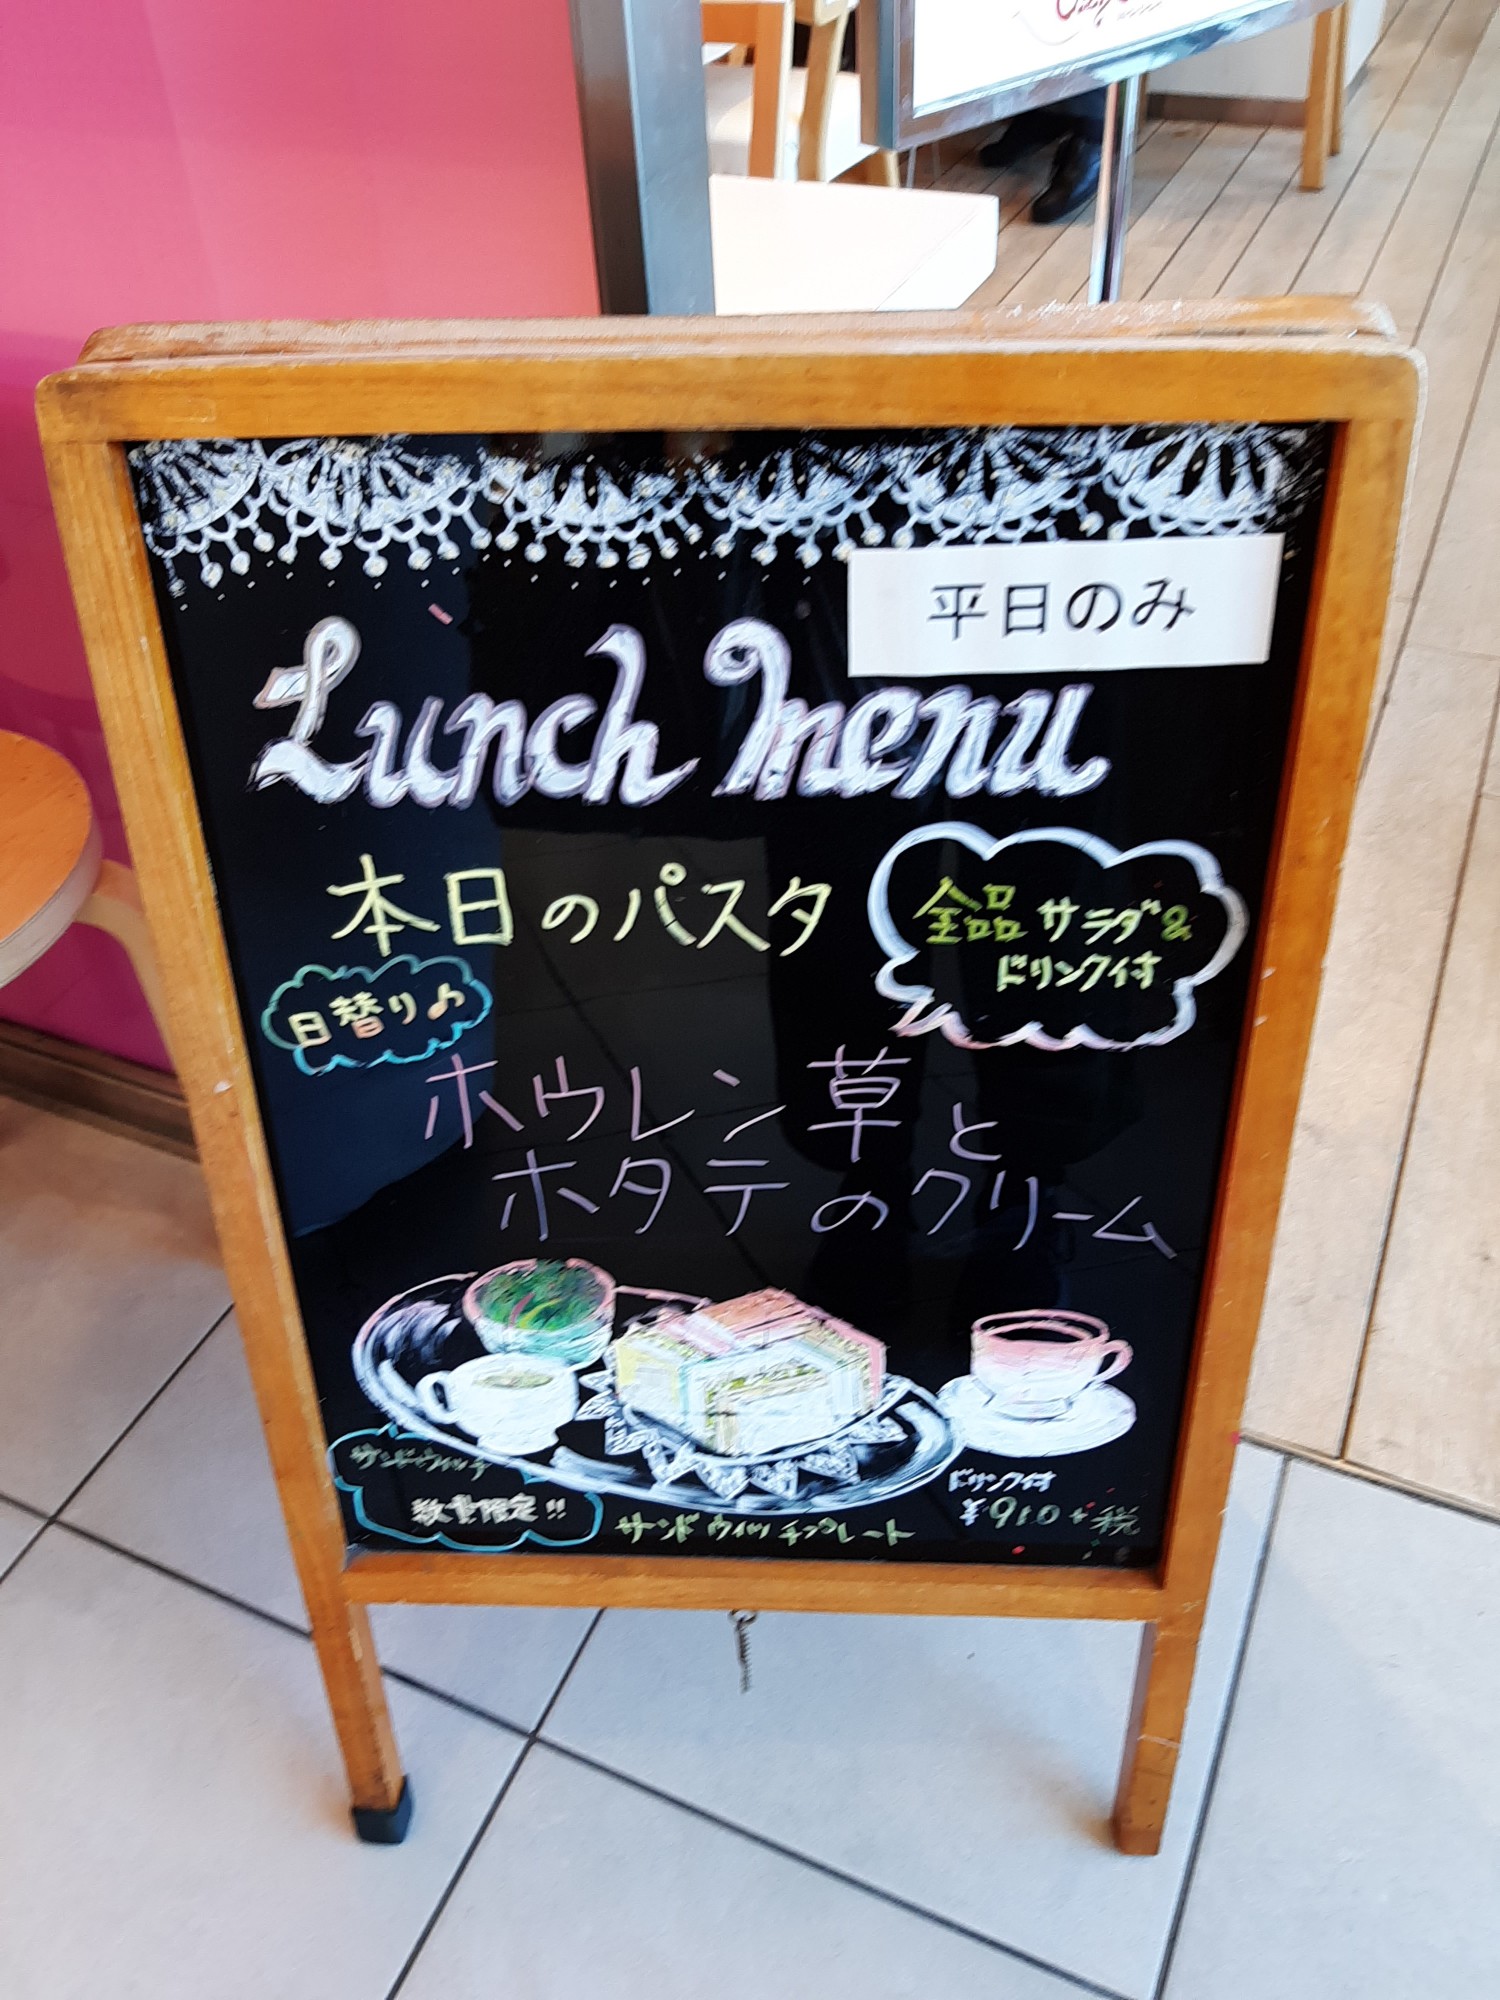 平日のみ
Lunch menu
本日のパスタ
全品サラダ&
ドリンク付
日替り♪
ホウレン草と
ホタテのクリーム
サンドウィッチ
数量限定!!
サンドウィッチプレート
ドリンク付
¥910+税